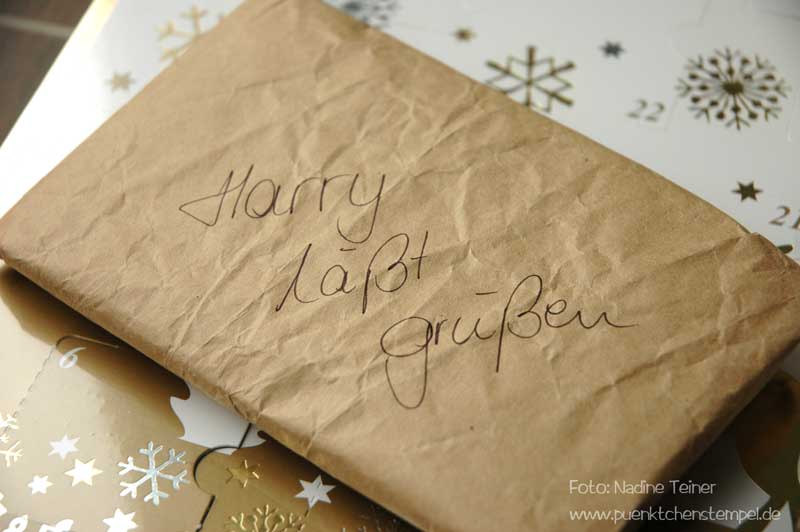 22
21
Harry
läßt
grüßen
6
Foto: Nadine Teiner
www.puenktchenstempel.de